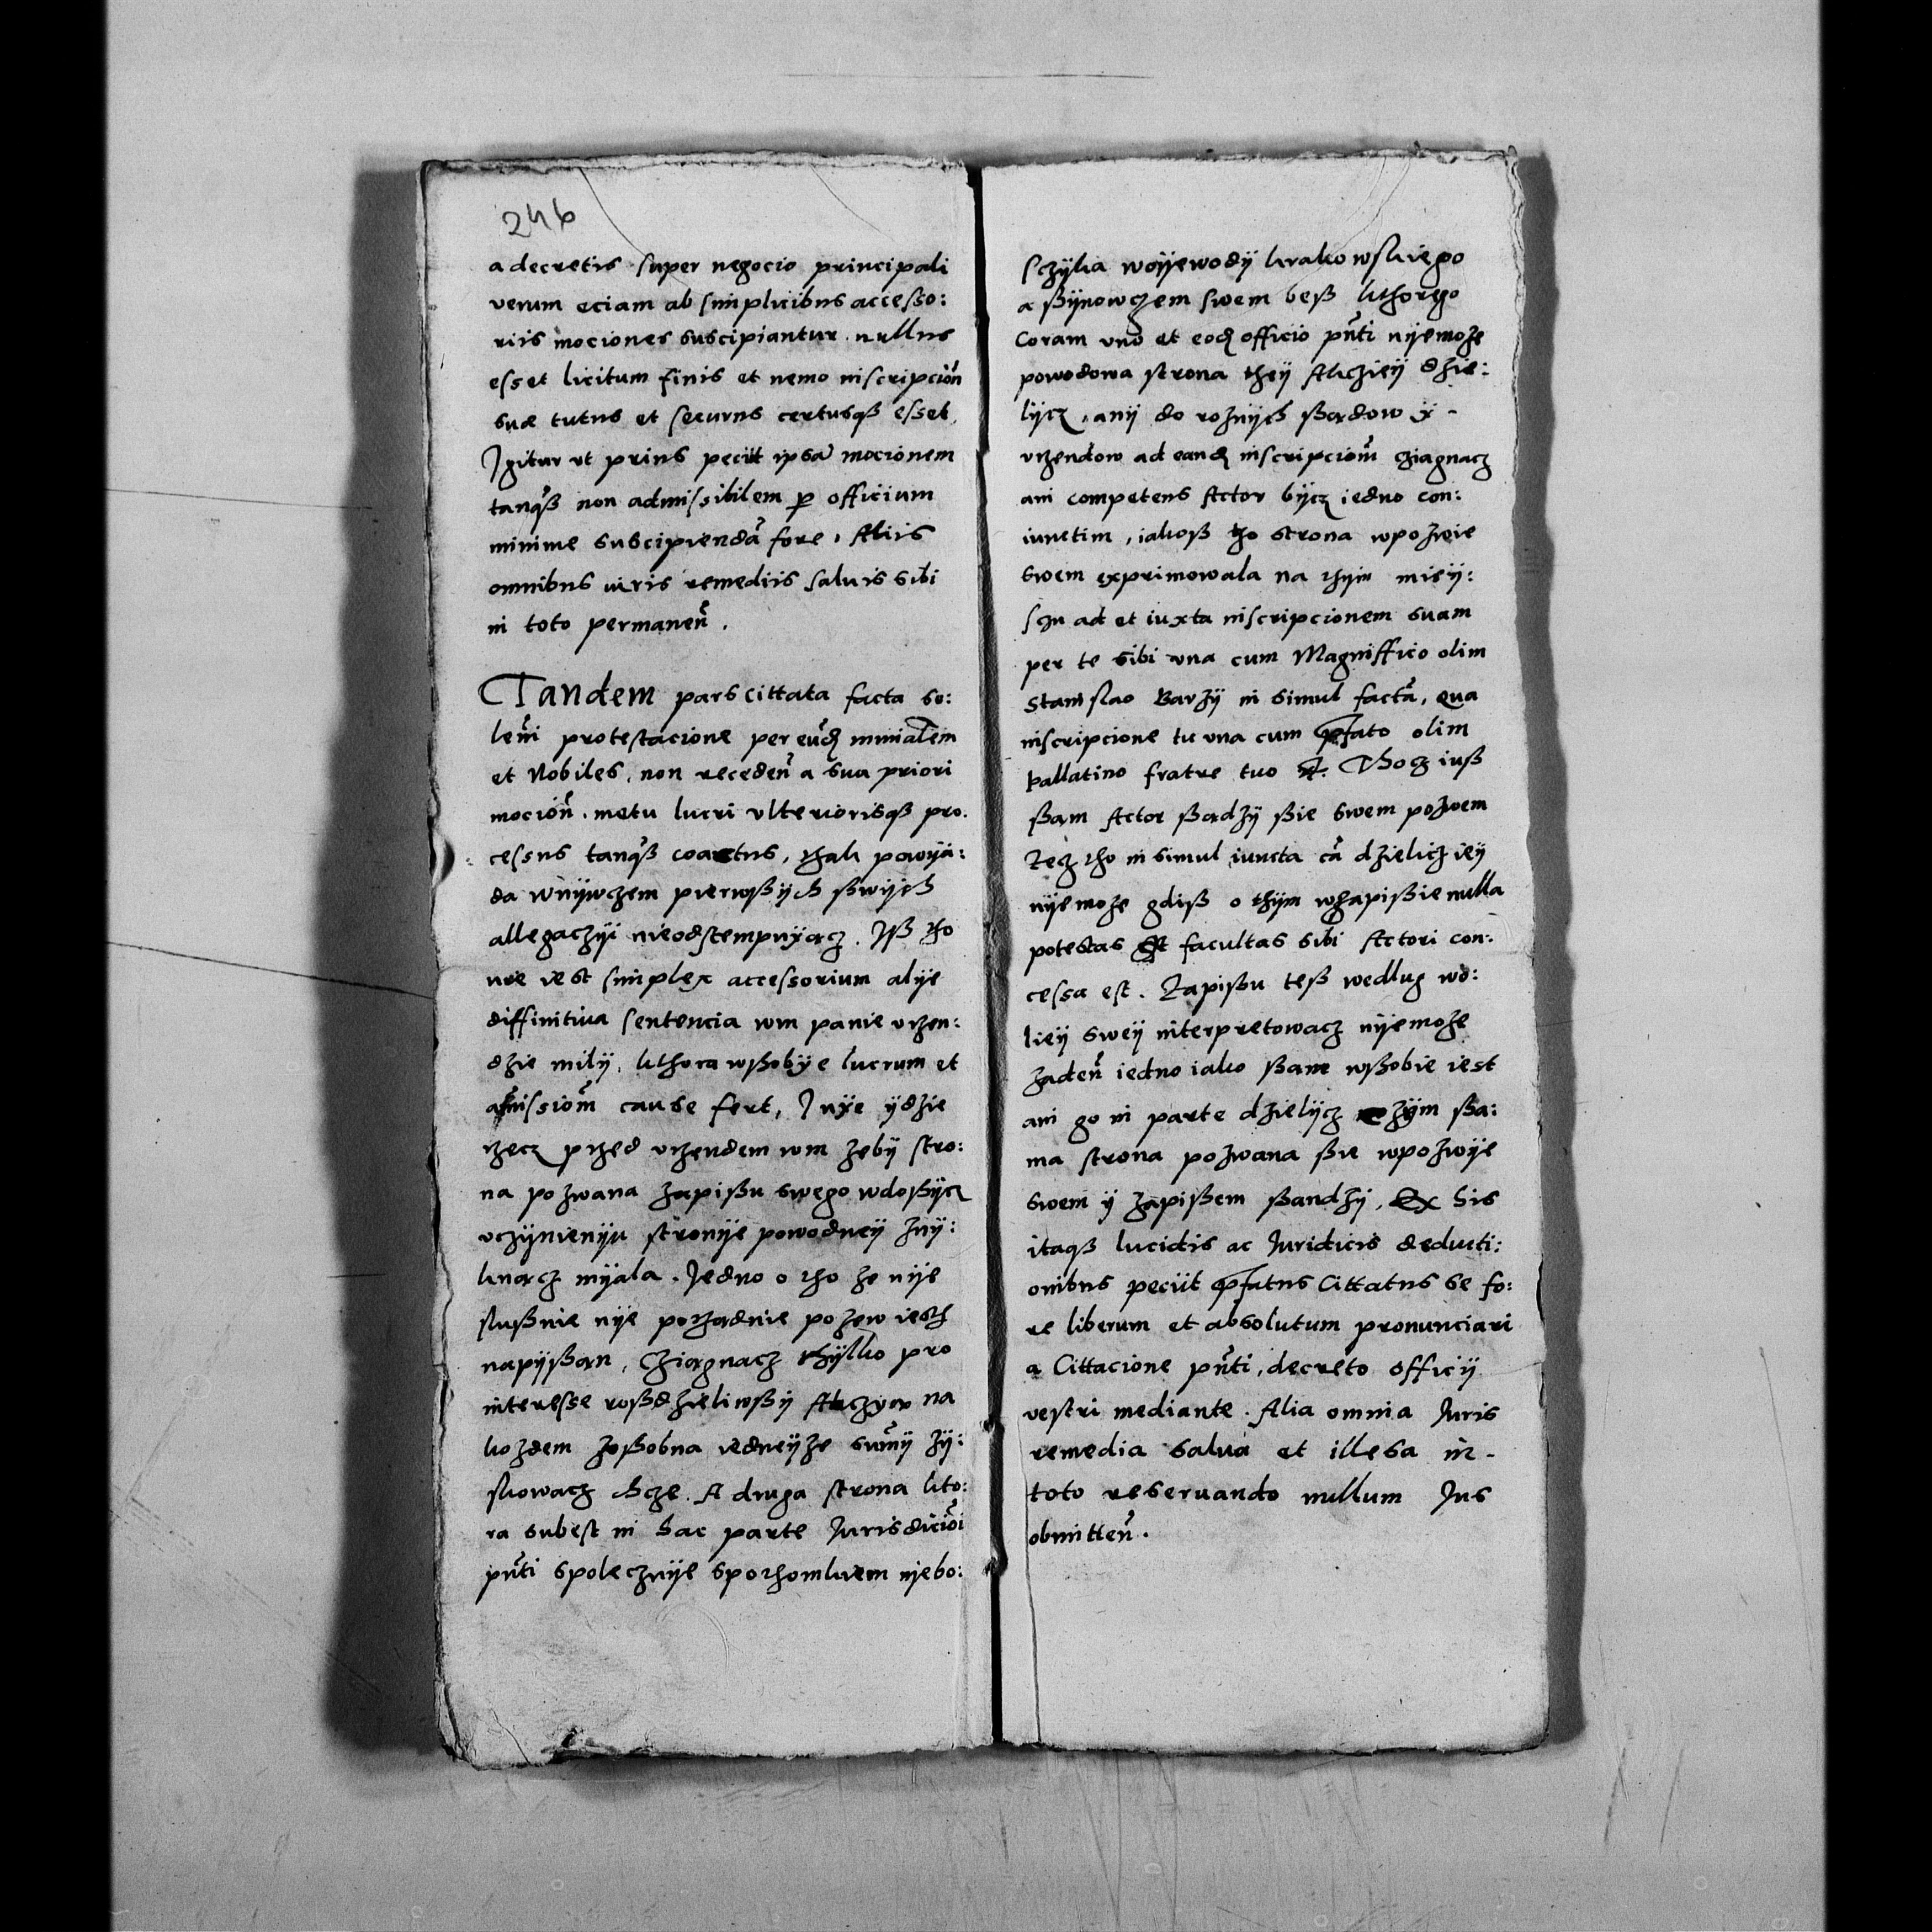 246
a decretis super negocio principali
verum eciam ab simplicibus accesso:
riis mociones suscipiantur nullus
esset licitum finis et nemo inscripcioñ
sua tutus et securus certusqß esset.
Igitur vt prius peciit ipsã mocionem
tanqß non admissibilem per officium
minime suscipiendã fore, Aliis
omnibus iuris remediis saluis sibi
in toto permaneñ.
Tandem pars cittata facta so:
leñi protestacione per eund ministialem
et Nobiles, non recedeñ a sua priori
mocioñ, metu lucri vlteriorisqß pro:
cessus tanqß coactus, thak powya:
da wnijwczem pierwßijch ßwijch
allegaczÿi nieodstempuÿącz. Iß tho
nie iest simplex accessorium alije
diffinitiua sentencia wm panie vrzen:
dzie milij, kthora wßobÿe lucrum et
amissioñ cause fert, I nÿe ÿdzie
rzecz przed vrzendem wm zebÿ stro:
na pozwana zapißu swego wdoßÿcz
vczÿnienÿu stronÿe powodneÿ znÿ:
knącz mÿala. Jedno o tho ze nÿe
slußnie nÿe porządnie pozew iesth
napÿßan, Cziągnacz thÿlko pro
interesse roßdzieliwßÿ Akczÿą na
kozdem zoßobna iedneÿze sum̃ÿ zÿ:
skowacz chcze. A druga strona kto:
ra subest in hac parte Jurisdicioi
pñti spolecznÿe spothomkiem njebo:
sczÿka woÿewodÿ krakowskiego
a ßÿnowczem swem beß kthorego
Coram vno et eod officio pñti nÿemoze
powodowa strona theÿ Akczieÿ dzie:
lÿcz, anÿ do roznÿch ßądow ÿ -
vrzendow ad eand inscripcioñ cziagnacz
ani competens Actor bÿcz iedno con:
iunctim, iakoß tho strona wpozwie
swem exprimowala na thÿm mieÿ:
sczu ad et iuxta inscripcionem suam
per te sibi vna cum Magniffico olim
Stanislao Barzÿ in simul factã, qua
inscripcione tu vna cum prefato olim
pallatino fratre tuo etc. Chocz iuß
ßam Actor ßądzÿ ßie swem pozwem
Tecz tho in simul iuncta cã dzieliczieÿ
nÿemoze gdiß o thÿm wzapißie nulla
potestas et facultas sibi Actori con:
cessa est. Zapißu teß wedlug wo:
lieÿ sweÿ interpretowacz nÿemoze
zadeñ iedno iako ßam wßobie iest
ani go in parte dzielÿcz czÿm ßa:
ma strona pozwana ßie wpozwÿe
swem ÿ zapißem ßandzÿ, Ex his
itaqß lucidis ac Juridicis deducti:
onibus peciit prefatus Cittatus se fo:
re liberum et absolutum pronunciari
a Cittacione pñti, decreto officij
vestri mediante. Alia omnia Juris
remedia salua et illesa in -
toto reseruando nullum Jus
obmitteñ.